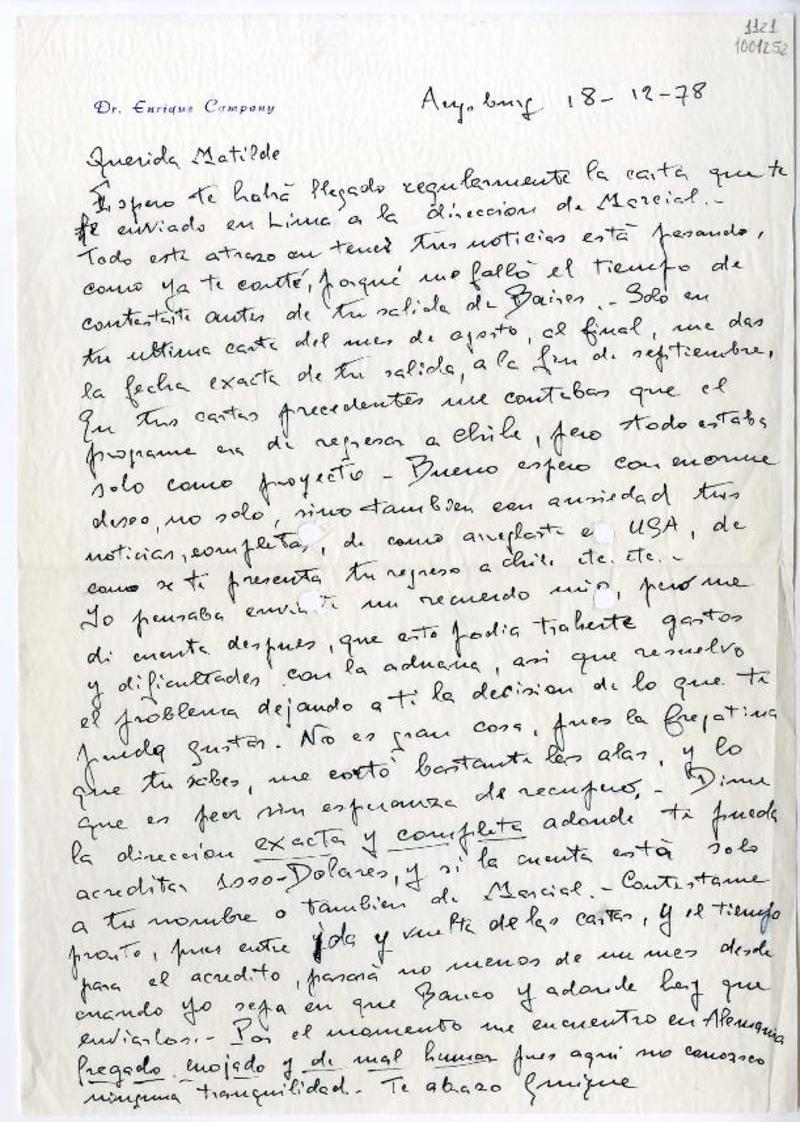 1121
1001252
Dr. Enrique Company
Augsburg 18-12-78
Querida Matilde
Espero te habrà llegado regularmente la carta que te
he enviado en Lima a la direccion de Marcial.-
Todo este atrazo en tener tus noticias està pesando,
como ya te conté, porqué me fallò el tiempo de
contestarte antes de tu salida de Baires.- Solo en
tu ultima carta del mes de agosto, al final, me das
la fecha exacta de tu salida, a la fin de septiembre,
En tus cartas precedentes me contabas que el
programa era di regresar a Chile, pero todo estaba
solo como proyecto - Bueno espero con enorme
deseo, no solo, sino tambien con ansiedad tus
noticias, completas, de como arreglaste en USA, de
como se te presenta tu regreso a chile etc. etc.-
Yo pensaba enviarte un recuerdo mio, però me
di cuenta despues, que esto podia traherte gastos
y dificultades con la aduana, asi que resuelvo
el problema dejando a ti la decision de lo que te
pueda gustar. No es gran cosa, pues la fregatina
que tu sabes, me cortò bastante las alas, y lo
que es peor sin esperanza de recupero.- Dime
la direccion exacta y completa adonde te pueda
acreditar 1000-Dolares, y si la cuenta està solo
a tu nombre o tambien de Marcial.- Contestame
pronto, pues entre ida y vuelta de las cartas, y el tiempo
para el acredito, pasarà no menos de un mes desde
cuando yo sepa en que Banco y adonde hay que
enviarlos.- Por el momento me encuentro en Alemania
fregado, enojado y de mal humor pues aqui no conozco
ninguna tranquilidad. Te abrazo Enrique